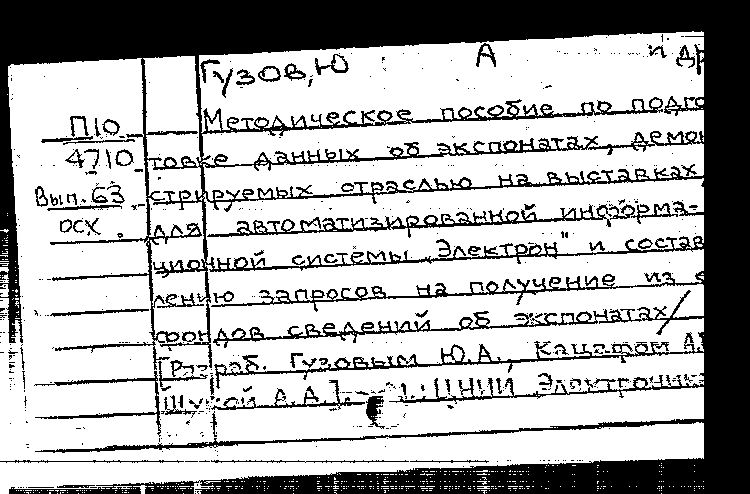 Гузов, Ю А и др
П10
4710
Вып. 63
осх.
Методическое пособие по подго
товке данных об экспонатах, демон
стрируемых отраслью на выставках,
для автоматизированной информа-
ционной системы „Электрон" и состав
лению запросов на получение из е
фондов сведений об экспонатах/
[Разраб. Гузовым Ю.А., Кацафом А.
Щукой А.А.]. ЦНИИ „Электроника